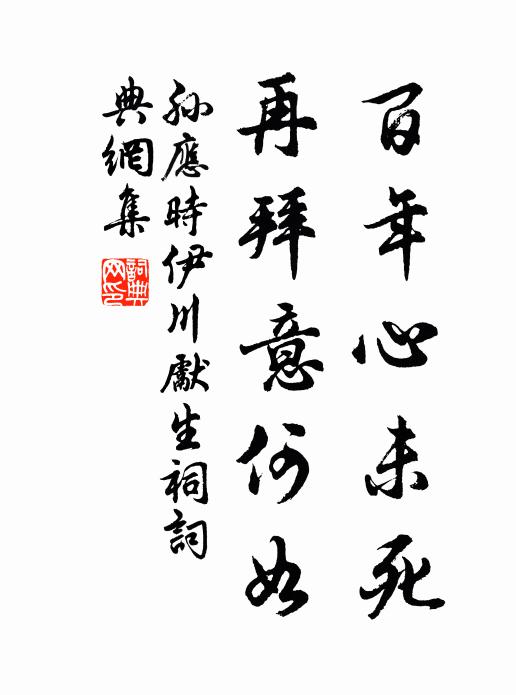 百年心未死
再拜意何如
孫應時伊川獻生祠詞
典網集
詞典
网印